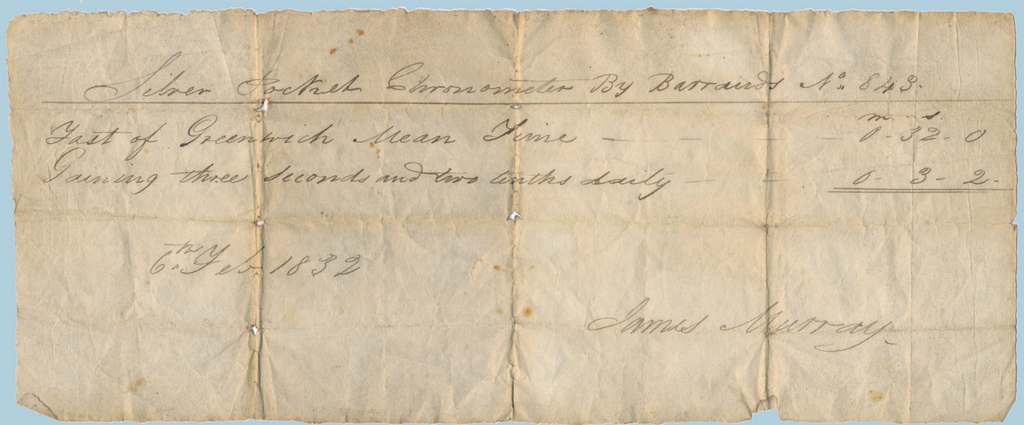 Silver Pocket Chronometer By Barrauds No. 843.
m s.
Fast of Greenwich Mean Time — — — — 0 - 32 - 0
Gaining three seconds and two tenths daily — — 0 - 3 - 2 -
6.th Feb. 1832
James Murray